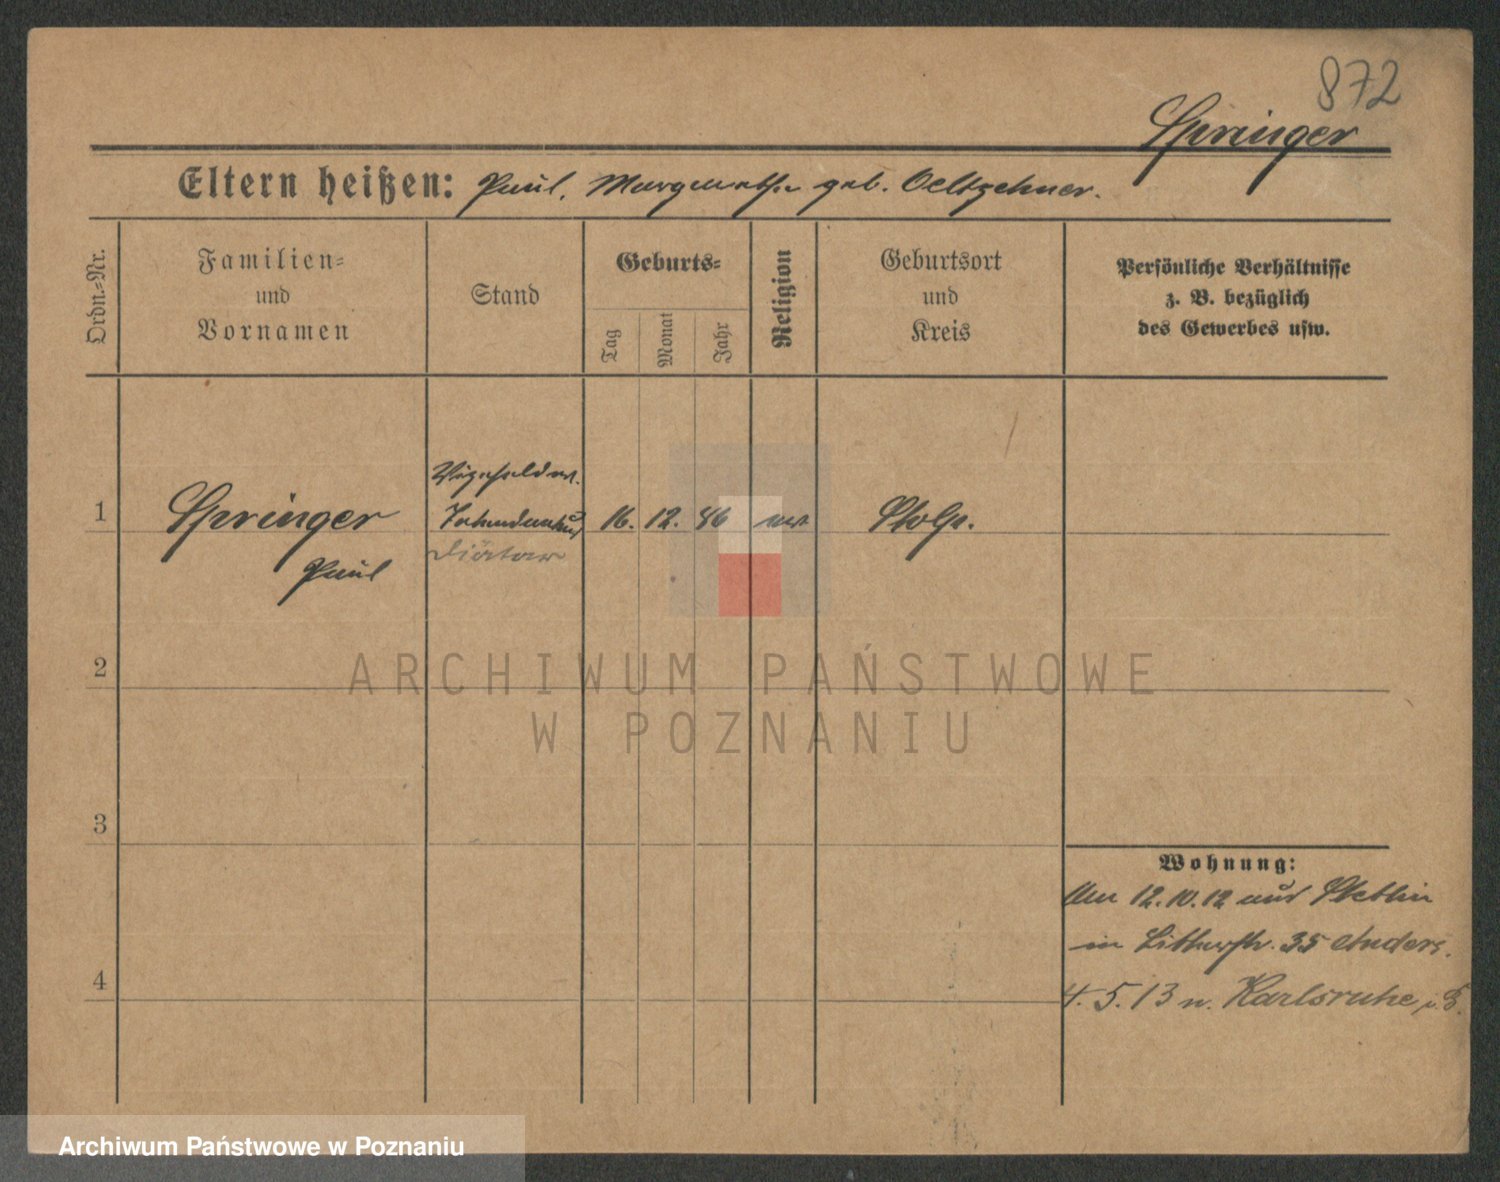 872
Springer
Eltern heißen: Paul, Margarethe geb. Oeltzchner.
Ordn.-Nr.
Familien-
und
Vornamen
Stand
Geburts-
Tag
Monat
Jahr
Religion
Geburtsort
und
Kreis
Persönliche Verhältnisse
z. B. bezüglich
des Gewerbes usw.
1
Springer
Paul
Vizefeldw.
Intendantur
Diätar
16. 12. 86
Stolp.
2
3
4
Wohnung:
Am 12.10.12 aus Stettin
in 35 Anders.
4. 5. 13 n. Karlsruhe
ARCHIWUM PAŃSTWOWE
W POZNANIU
Archiwum Państwowe w Poznaniu